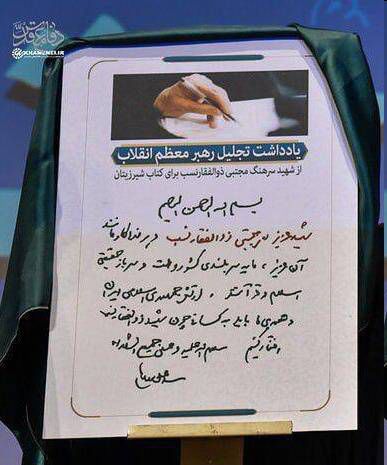 دفاع مقدس
KHAMENEI.IR
یادداشت تجلیل رهبر معظم انقلاب
از شهید سرهنگ مجتبی ذوالفقارنسب برای کتاب شیرزیتان
بسم الله الرحمن الرحیم
شهید عزیز مجتبی ذوالفقارنسب و هر فداکار مانند
آن عزیز، مایه سربلندی کشور و ملت و سرباز حقیقی
اسلام و قرآنند. ارتش جمهوری اسلامی ایران
و همه‌ی ما باید به کسانی چون شهید ذوالفقارنسب
افتخار کنیم سلام الله علیه و علی جمیع الشهداء